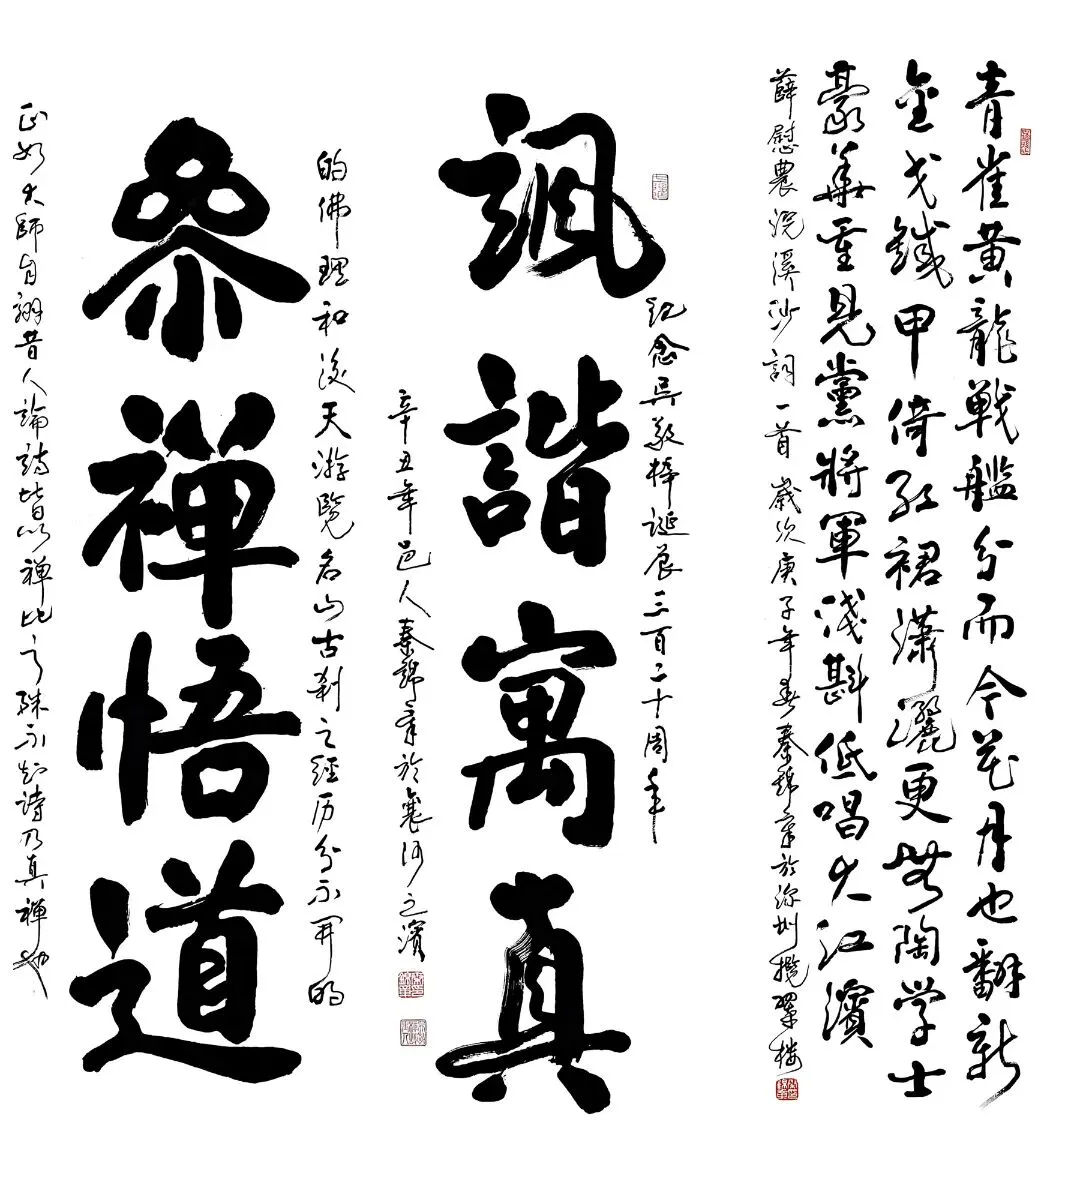 青雀黄龍戦艦分而今花月也翻新
金戈鐵甲倚紅裙瀟灑更無陶学士
豪華重見黨將軍浅斟低唱大江濱
薛慰農浣溪沙詞一首歲次庚子年春秦錦章於深圳攬翠楼
諷諧寓真
紀念吳敬梓誕辰三百二十周年
辛丑年邑人秦錦章於襄河之濱
叅禪悟道
的佛理和後天游覽名山古刹之經历分不開的
正如大師自詡昔人論詩皆以禪比之殊不知詩乃真禪也